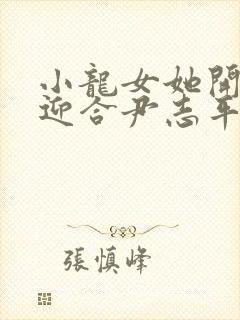 小龍女她開
迎合尹志平
張慎峰